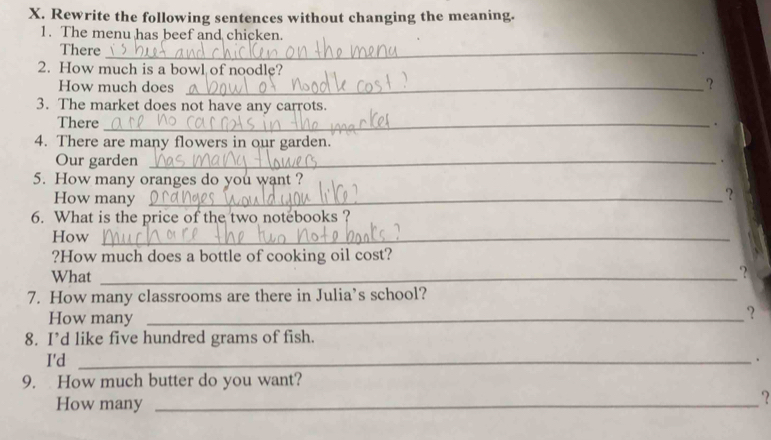 X. Rewrite the following sentences without changing the meaning.
1. The menu has beef and chicken.
There is beef and chicken on the menu .
2. How much is a bowl of noodle?
How much does a bowl of noodle cost? ?
3. The market does not have any carrots.
There are no carrots in the market .
4. There are many flowers in our garden.
Our garden has many flowers .
5. How many oranges do you want ?
How many oranges would you like? ?
6. What is the price of the two notebooks ?
How much are the two notebooks?
?How much does a bottle of cooking oil cost?
What ?
7. How many classrooms are there in Julia's school?
How many ?
8. I'd like five hundred grams of fish.
I'd .
9. How much butter do you want?
How many ?